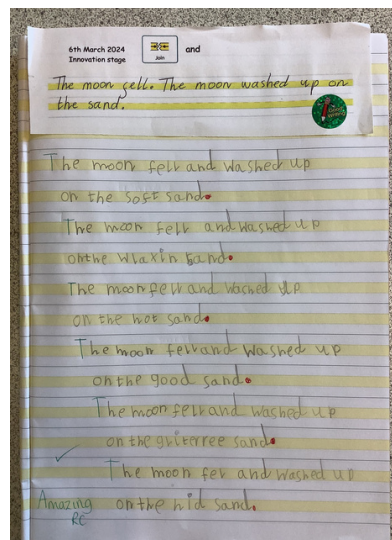 6th March 2024
Innovation stage
Join
and
The moon fell. The moon washed up on
the sand.
The moon fell and washed up
on the soft sand.
The moon fell and washed up
on the wlaxin sand.
The moon fell and washed up
on the hot sand.
The moon fell and washed up
on the good sand.
The moon fell and washed up
on the griterree sand.
The moon fer and washed up
Amazing on the hid sand.
RC